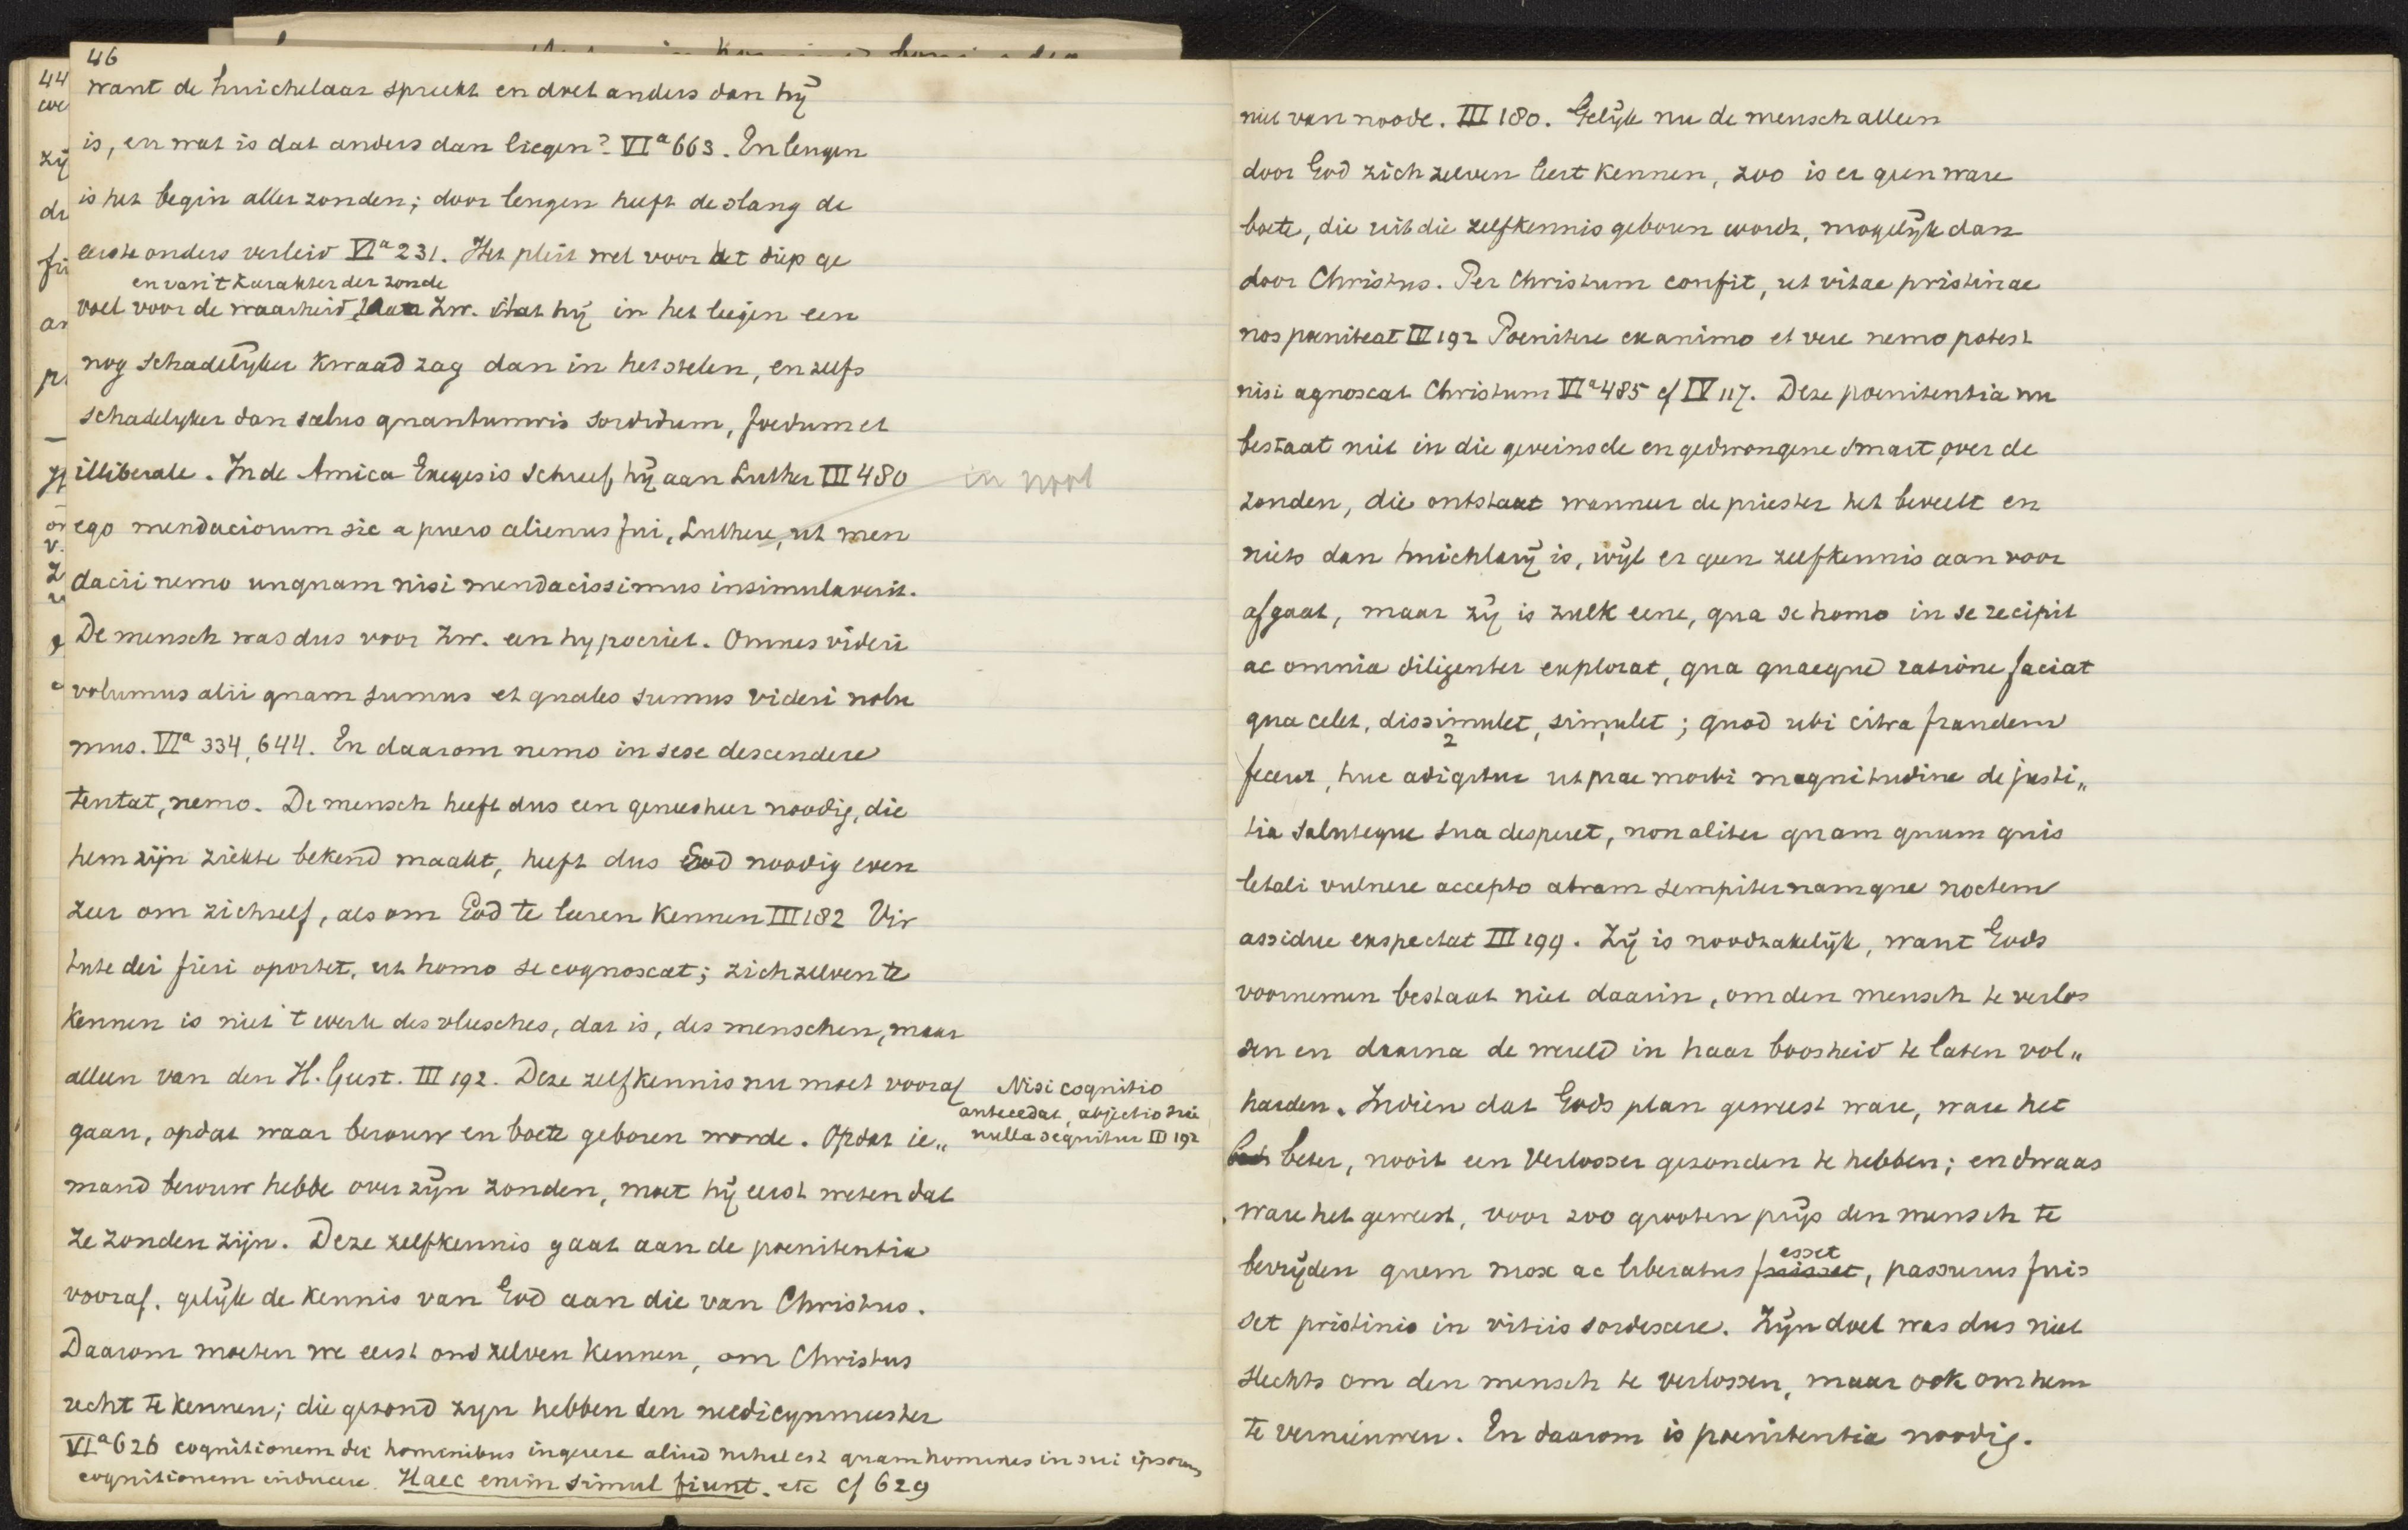 46
want de huichelaar spreekt en doet anders dan hij
is, en wat is dat anders dan liegen? VIa 663. En leugen
is het begin aller zonden; door leugen heeft de slang de
eerste ouders verleid VIa 231. Het pleit wel voor het diep ge
en van 't karakter der zonde
voel voor de waarheid Zw. dat hij in het liegen een
nog schadelijker kwaad zag dan in het stelen, en zelfs
schadelijker dan scelus quantumvis sordidum, foedum et
illiberale. In de Amica Exegesis schreef hij aan Luther III 480
in noot
ego mendaciorum sic a puero alienus fui, Luthere, ut men
dacii nemo unquam nisi mendacissimus insimulaverit.
De mensch was dus voor Zw. een hypocriet. Omnes videri
volumus alii quam sumus et quales sumus videri nolu
mus. VIa 334, 644. En daarom nemo in sese descendere
tentat, nemo. De mensch heeft dus een geneesheer noodig, die
hem zijn ziekte bekend maakt, heeft dus God noodig even
zeer om zichzelf, als om God te leeren kennen III 182 Vir
tute dei fieri oportet, ut homo se cognoscat; zichzelven te
kennen is niet 't werk des vleesches, dat is, des menschen, maar
alleen van den H. Geest. III 192. Deze zelfkennis nu moet vooraf
gaan, opdat waar berouw en boete geboren worde. Opdat ie„
Nisi cognitio
antecedat, abjectio sui
nulla sequitur III 192
mand berouw hebbe over zijn zonden, moet hij eerst weten dat
ze zonden zijn. Deze zelfkennis gaat aan de poenitentia
vooraf, gelijk de kennis van God aan die van Christus.
Daarom moeten we eerst ons zelven kennen, om Christus
recht te kennen; die gezond zyn hebben den medicynmeester
VIa 626 cognitionem dei hominibus ingerere aliud nihil est quam homines in sui ipsorum
cognitionem inducere. Haec enim simul fiunt. etc cf 629
niet van noode. III 180. Gelijk nu de mensch alleen
door God zich zelven leert kennen, zoo is er geen ware
boete, die uit die zelfkennis geboren wordt, mogelijk dan
door Christus. Per Christum confit, ut vitae pristinae
nos poeniteat III 192 Poenitere ex animo et vere nemo potest
nisi agnoscat Christum VIa 485 cf IV 117. Deze poenitentia nu
bestaat niet in die geveinsde en gedwongene smart over de
zonden, die ontstaat wanneer de priester het beveelt en
niets dan huichlarij is, wijl er geen zelfkennis aan voor
afgaat, maar zij is zulk eene, qua se homo in se recipit
ac omnia diligenter explorat, qua quaeque ratione faciat
qua celet, dissimulet, simulet; quod ubi citra fraudem
2
fecerit, huc adigitur ut prae morbi magnitudine de justi„
tia saluteque sua desperet, non aliter quam quum quis
letali vulnere accepto atram sempiternamque noctem
assidue exspectat III 199. Zij is noodzakelijk, want Gods
voornemen bestaat niet daarin, om den mensch te verlos
sen en daarna de wereld in haar boosheid te laten vol„
harden. Indien dat Gods plan geweest ware, ware het
beter, nooit een Verlosser gezonden te hebben; en dwaas
ware het geweest, voor zoo grooten prijs den mensch te
esset
bevrijden quem mox ac liberatus fuisset, passurus fuis
set pristinis in vitiis sordescere. Zijn doel was dus niet
slechts om den mensch te verlossen, maar ook om hem
te vernieuwen. En daarom is poenitentia noodig.